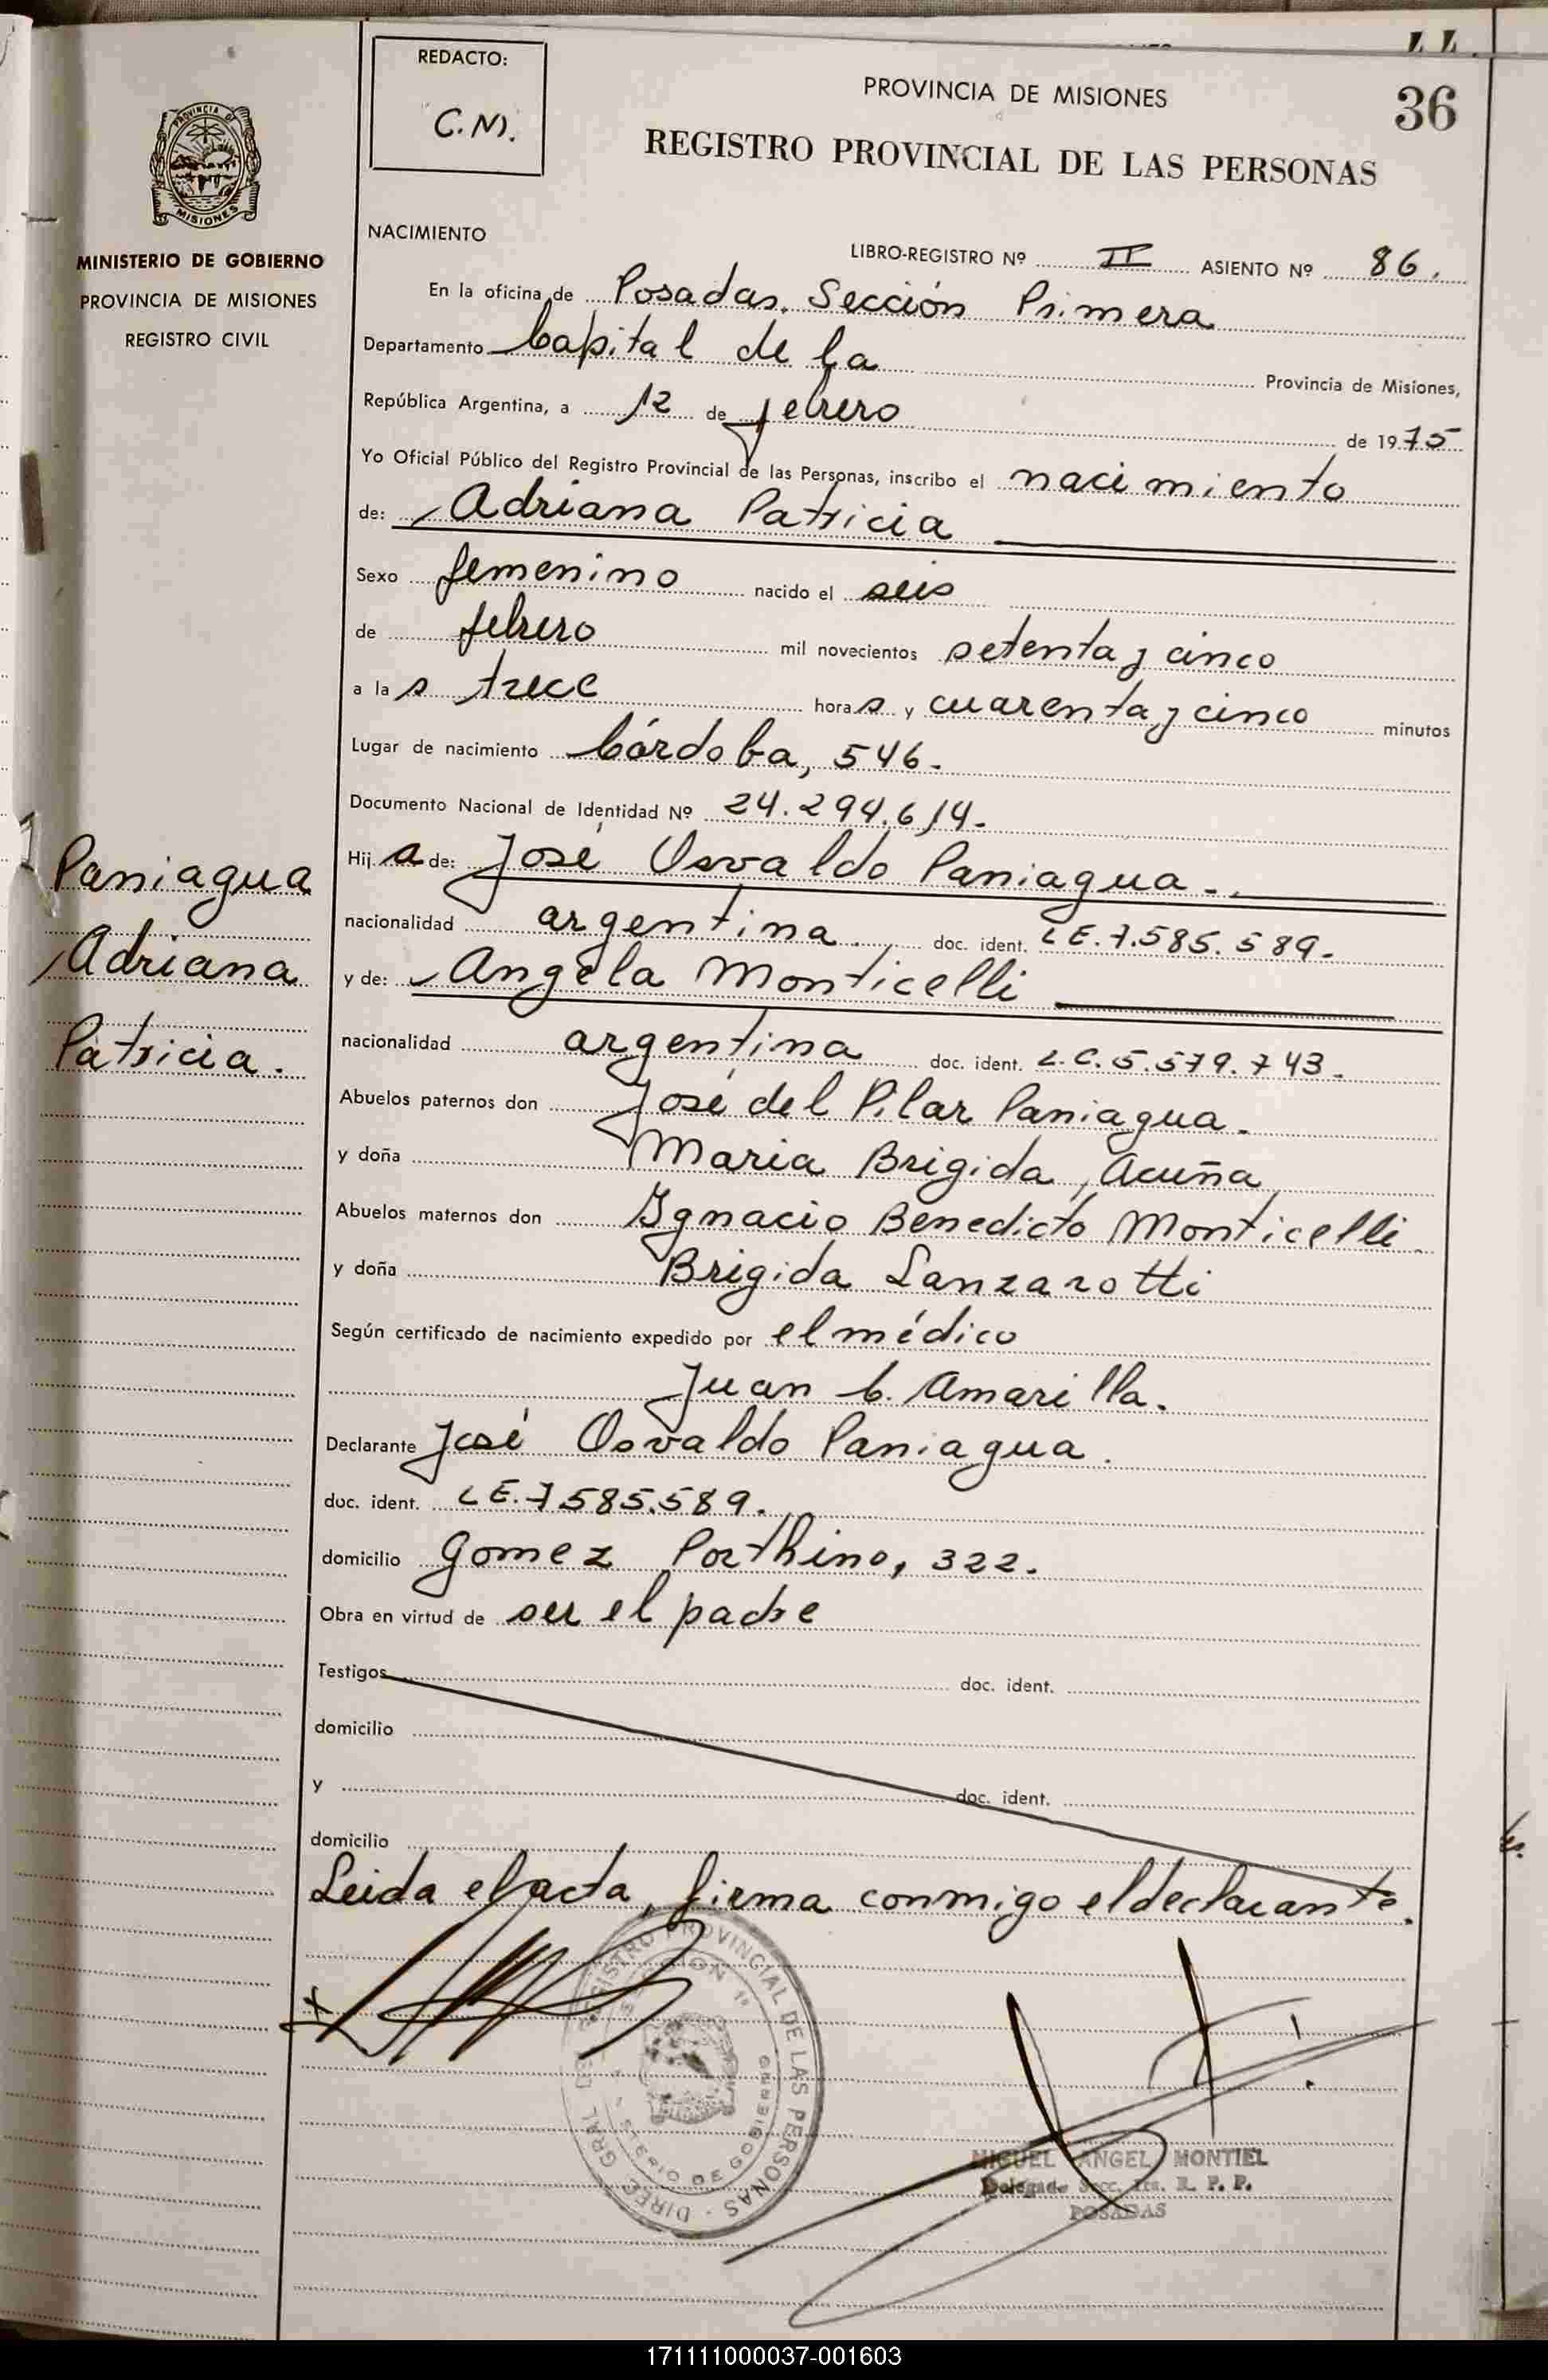 REDACTO:
C.M.
PROVINCIA DE MISIONES
36
REGISTRO PROVINCIAL DE LAS PERSONAS
PROVINCIA DE
MISIONES
MINISTERIO DE GOBIERNO
PROVINCIA DE MISIONES
REGISTRO CIVIL
NACIMIENTO
LIBRO-REGISTRO Nº II ASIENTO Nº 86.
En la oficina de Posadas. Sección Primera
Departamento Capital de la Provincia de Misiones,
República Argentina, a 12 de febrero de 1975
Yo Oficial Público del Registro Provincial de las Personas, inscribo el nacimiento
de: Adriana Patricia
Sexo femenino nacido el seis
de febrero mil novecientos setenta y cinco
a las trece horas y cuarenta y cinco minutos
Lugar de nacimiento Córdoba, 546.
Documento Nacional de Identidad Nº 24.294.614.
Hija de: José Osvaldo Paniagua.
nacionalidad argentina. doc. ident. L E. 7.585.589.
y de: Angela Monticelli
nacionalidad argentina doc. ident. L.C. 5.579.743.
Abuelos paternos don José del Pilar Paniagua.
y doña Maria Brigida Acuña
Abuelos maternos don Ignacio Benedicto Monticelli.
y doña Brigida Lanzarotti
Según certificado de nacimiento expedido por el médico
Juan C. Amarilla.
Declarante José Osvaldo Paniagua.
doc. ident. L E. 7.585.589.
domicilio Gomez Porthino, 322.
Obra en virtud de ser el padre
Testigos doc. ident.
domicilio
y doc. ident.
domicilio
Leida el acta, firma conmigo el declarante.
Paniagua
Adriana
Patricia.
DIREC. GRAL. DEL REGISTRO PROVINCIAL DE LAS PERSONAS
SECCION 1ª
MINISTERIO DE GOBIERNO
MIGUEL ANGEL MONTIEL
Delegado Secc. 1ra. R. P. P.
POSADAS
171111000037-001603